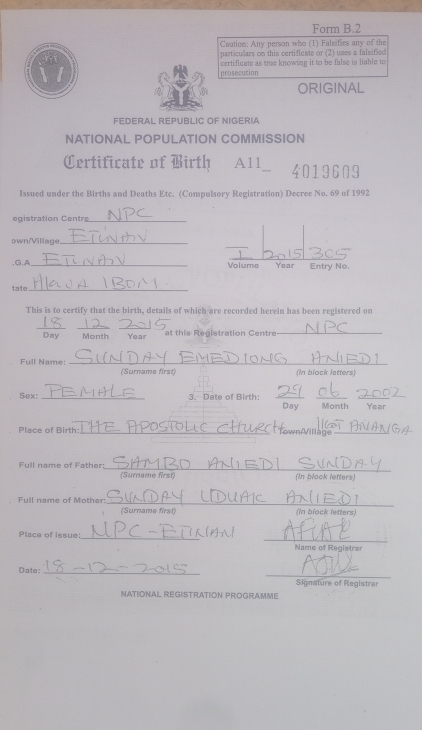 Form B.2
Caution: Any person who (1) Falsifies any of the
particulars on this certificate or (2) uses a falsified
certificate as true knowing it to be false is liable to
prosecution
ORIGINAL
FEDERAL REPUBLIC OF NIGERIA
NATIONAL POPULATION COMMISSION
Certificate of Birth A11_ 4019609
Issued under the Births and Deaths Etc. (Compulsory Registration) Decree No. 69 of 1992
egistration Centre NPC
own/Village ETINAN
.G.A ETINAN
I 2015 305
Volume Year Entry No.
tate AKWA IBOM
This is to certify that the birth, details of which are recorded herein has been registered on
18 12 2015 at this Registration Centre NPC
Day Month Year
Full Name: SUNDAY EMEDIONG ANIEDI
(Surname first) (In block letters)
Sex: FEMALE 3. Date of Birth: 29 06 2002
Day Month Year
Place of Birth: THE APOSTOLIC CHURCH Town/Village
Full name of Father: SAMBO ANIEDI SUNDAY
(Surname first) (In block letters)
Full name of Mother: SUNDAY UDUAK ANIEDI
(Surname first) (In block letters)
Place of issue: NPC-ETINAN
Name of Registrar
Date: 18-12-2015
Signature of Registrar
NATIONAL REGISTRATION PROGRAMME